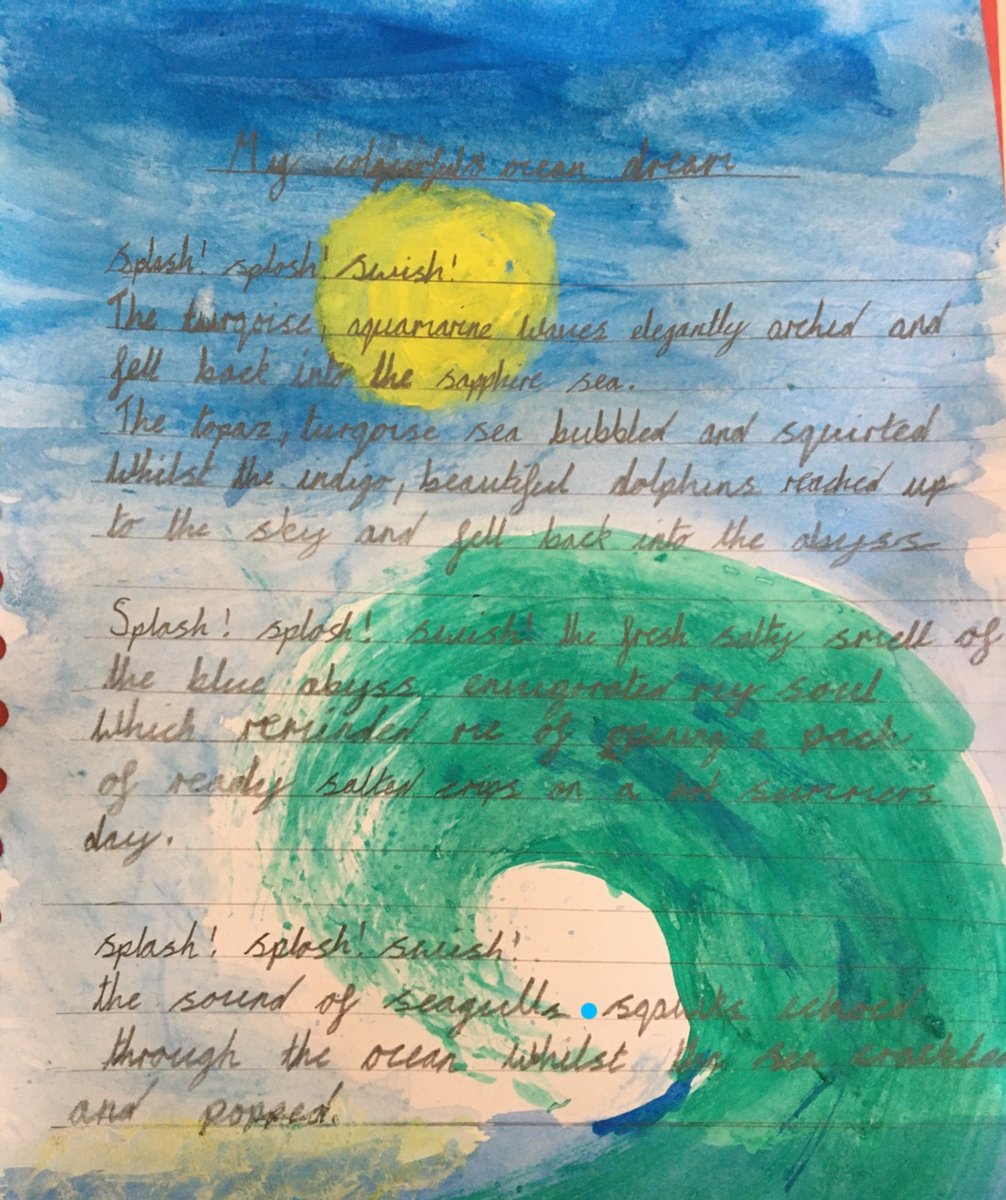 My colourful ocean dream
splash! splosh! swish!
The turqoise, aquamarine waves elegantly arched and
fell back into the sapphire sea.
The topaz, turqoise sea bubbled and squirted
Whilst the indigo, beautiful dolphins reached up
to the sky and fell back into the abyss
Splash! splosh! swish! the fresh salty smell of
the blue abyss envigorated my soul
Which reminded me of opening a pack
of ready salted crisps on a hot summers
day.
splash! splosh! swish!
the sound of seagulls squarks echoed
through the ocean whilst the sea crackled
and popped.